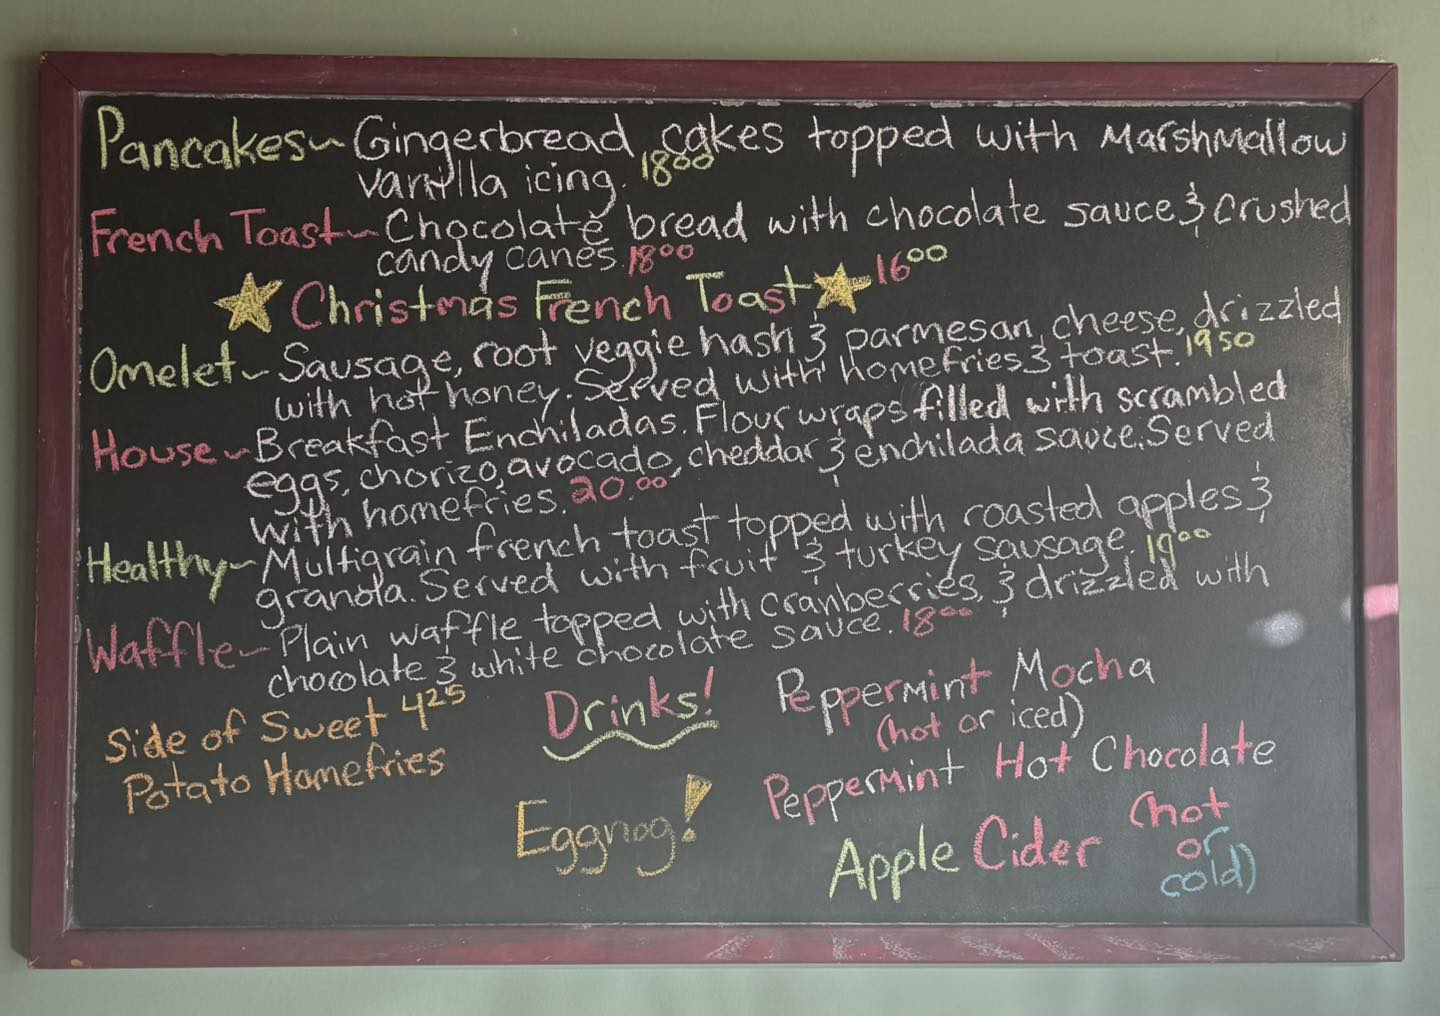 Pancakes~ Gingerbread cakes topped with Marshmallow
vanilla icing. 18⁰⁰
French Toast~ Chocolate bread with chocolate sauce & crushed
candy canes. 18⁰⁰
Christmas French Toast 16⁰⁰
Omelet~ Sausage, root veggie hash & parmesan cheese, drizzled
with hot honey. Served with homefries & toast. 19⁵⁰
House~ Breakfast Enchiladas. Flour wraps filled with scrambled
eggs, chorizo, avocado, cheddar & enchilada sauce. Served
with homefries. 20.⁰⁰
Healthy~ Multigrain french toast topped with roasted apples &
granola. Served with fruit & turkey sausage. 19⁰⁰
Waffle~ Plain waffle topped with cranberries, & drizzled with
chocolate & white chocolate sauce. 18⁰⁰
Side of Sweet 4²⁵
Potato Homefries
Drinks!
Eggnog!
Peppermint Mocha
(hot or iced)
Peppermint Hot Chocolate
Apple Cider (hot
or
cold)